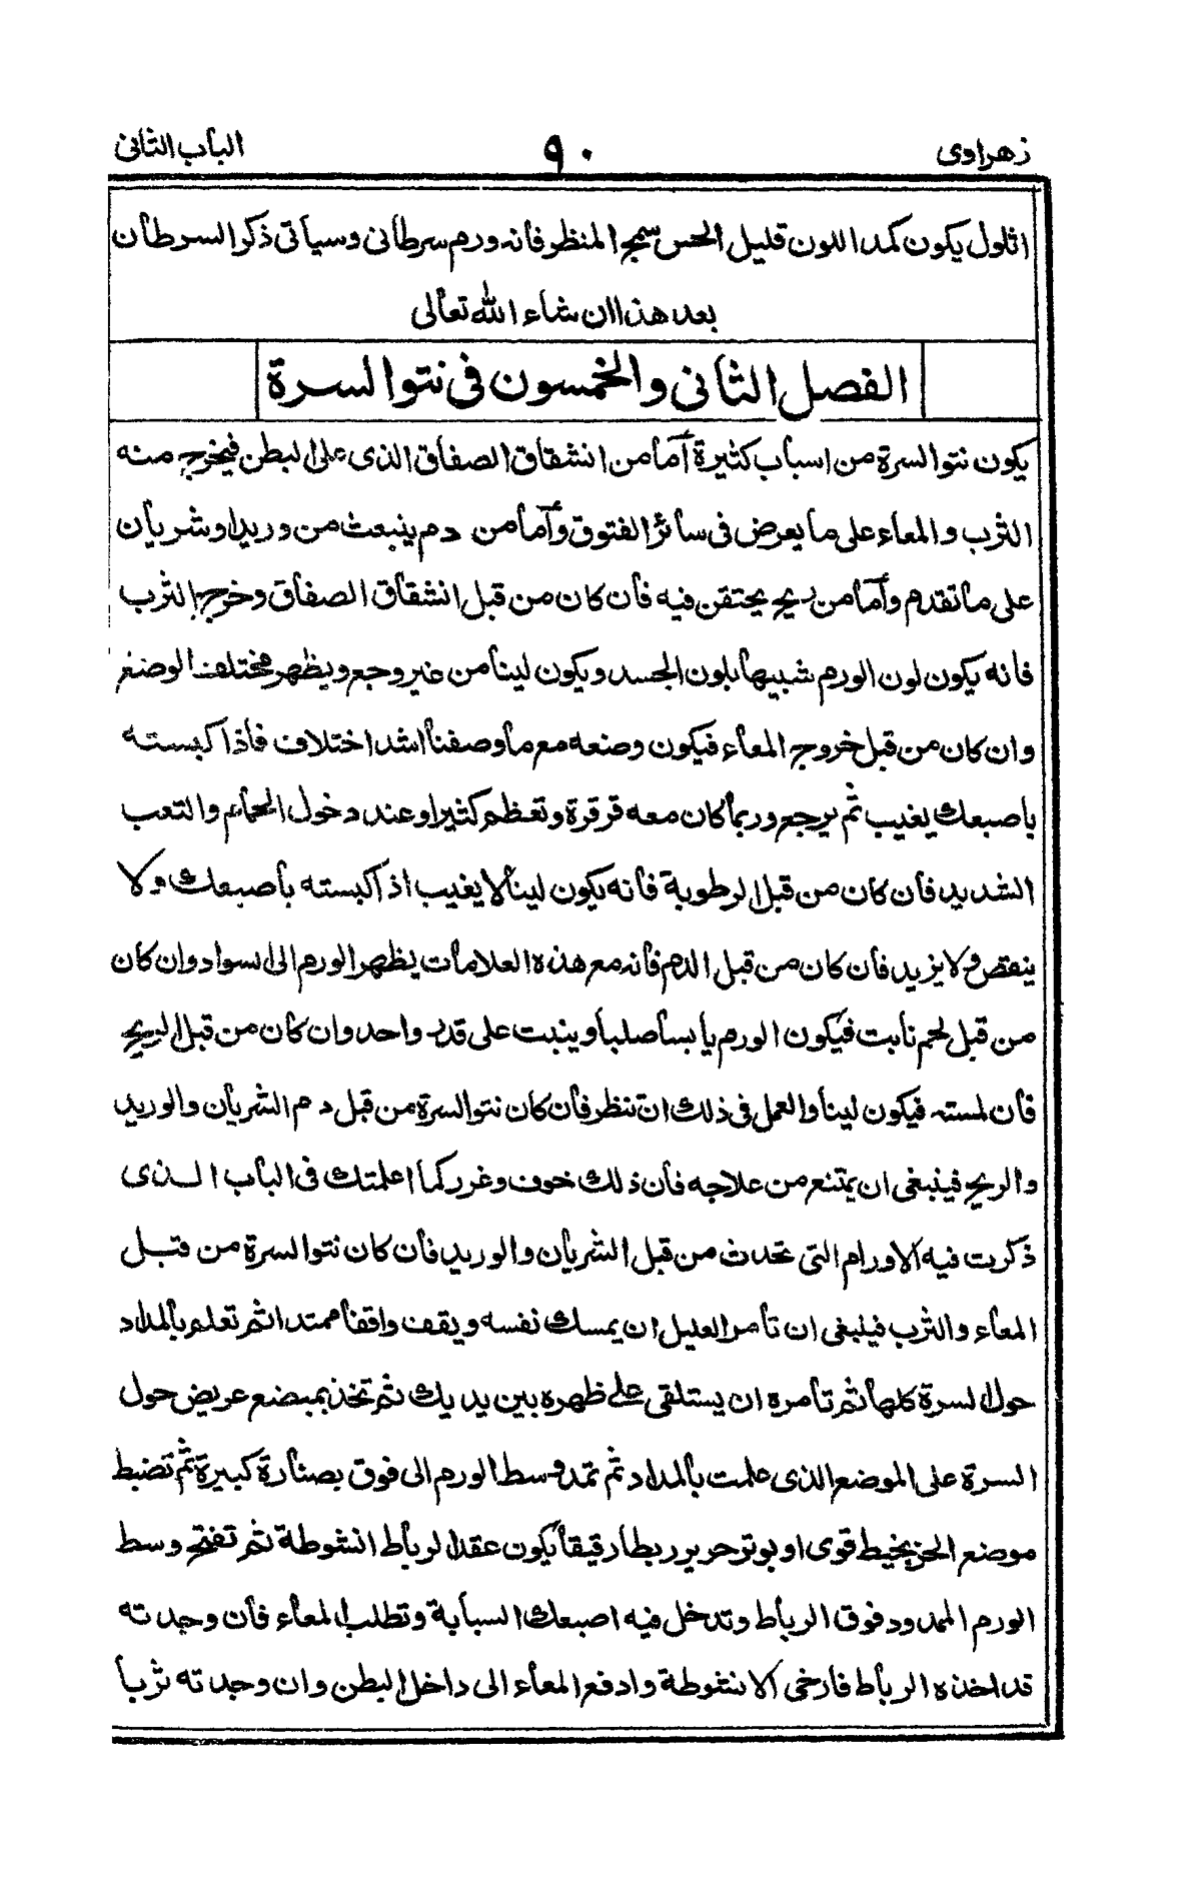 زهراوى ٩٠ الباب الثانى
اثلول يكون كمد اللون قليل الحس سمج المنظر فانه ورم سرطانى وسيأتى ذكر السرطان
بعد هذا ان شاء الله تعالى
الفصل الثانى والخمسون فى نتو السرة
يكون نتو السرة من اسباب كثيرة أما من انشقاق الصفاق الذى على البطن فيخرج منه
الثرب والمعاء على ما يعرض فى سائر الفتوق وأما من دم ينبعث من وريد او شريان
على ما تقدم وأما من ريح يحتقن فيه فان كان من قبل انشقاق الصفاق وخرج الثرب
فانه يكون لون الورم شبيها بلون الجسد ويكون لينا من غير وجع ويظهر مختلف الوضع
وان كان من قبل خروج المعاء فيكون وضعه مع ما وصفنا اشد اختلاف فاذا كبسته
باصبعك يغيب ثم يرجع وربما كان معه قرقرة وتعظم كثيرا وعند دخول الحمام والتعب
الشديد فان كان من قبل الرطوبة فانه يكون لينا لا يغيب اذا كبسته باصبعك ولا
ينقص ولا يزيد فان كان من قبل الدم فانه مع هذه العلامات يظهر الورم الى السواد وان كان
من قبل لحم نابت فيكون الورم يابسا صلبا وينبت على قدر واحد وان كان من قبل الريح
فان لمسته فيكون لينا والعمل فى ذلك ان تنظر فان كان نتو السرة من قبل دم الشريان والوريد
والريح فينبغى ان يمتنع من علاجه فان ذلك خوف وغرر كما اعلمتك فى الباب الذى
ذكرت فيه الاورام التى تحدث من قبل الشريان والوريد فان كان نتو السرة من قبل
المعاء والثرب فيلبغى ان تأمر العليل ان يمسك نفسه ويقف واقفا ممتدا ثم تعلم بالمداد
حول السرة كلها ثم تأمره ان يستلقى على ظهره بين يديك ثم تخذ بمبضع عريض حول
السرة على الموضع الذى علمت بالمداد ثم تمد وسط الورم الى فوق بصنارة كبيرة ثم تضبط
موضع الحز بخيط قوى او بوتر حرير ربطا رقيقا يكون عقد الرباط انشوطة ثم تفتح وسط
الورم الممدود فوق الرباط وتدخل فيه اصبعك السبابة وتطلب المعاء فان وجدته
قد اخذه الرباط فارخى الانشوطة وادفع المعاء الى داخل البطن وان وجدته ثربا